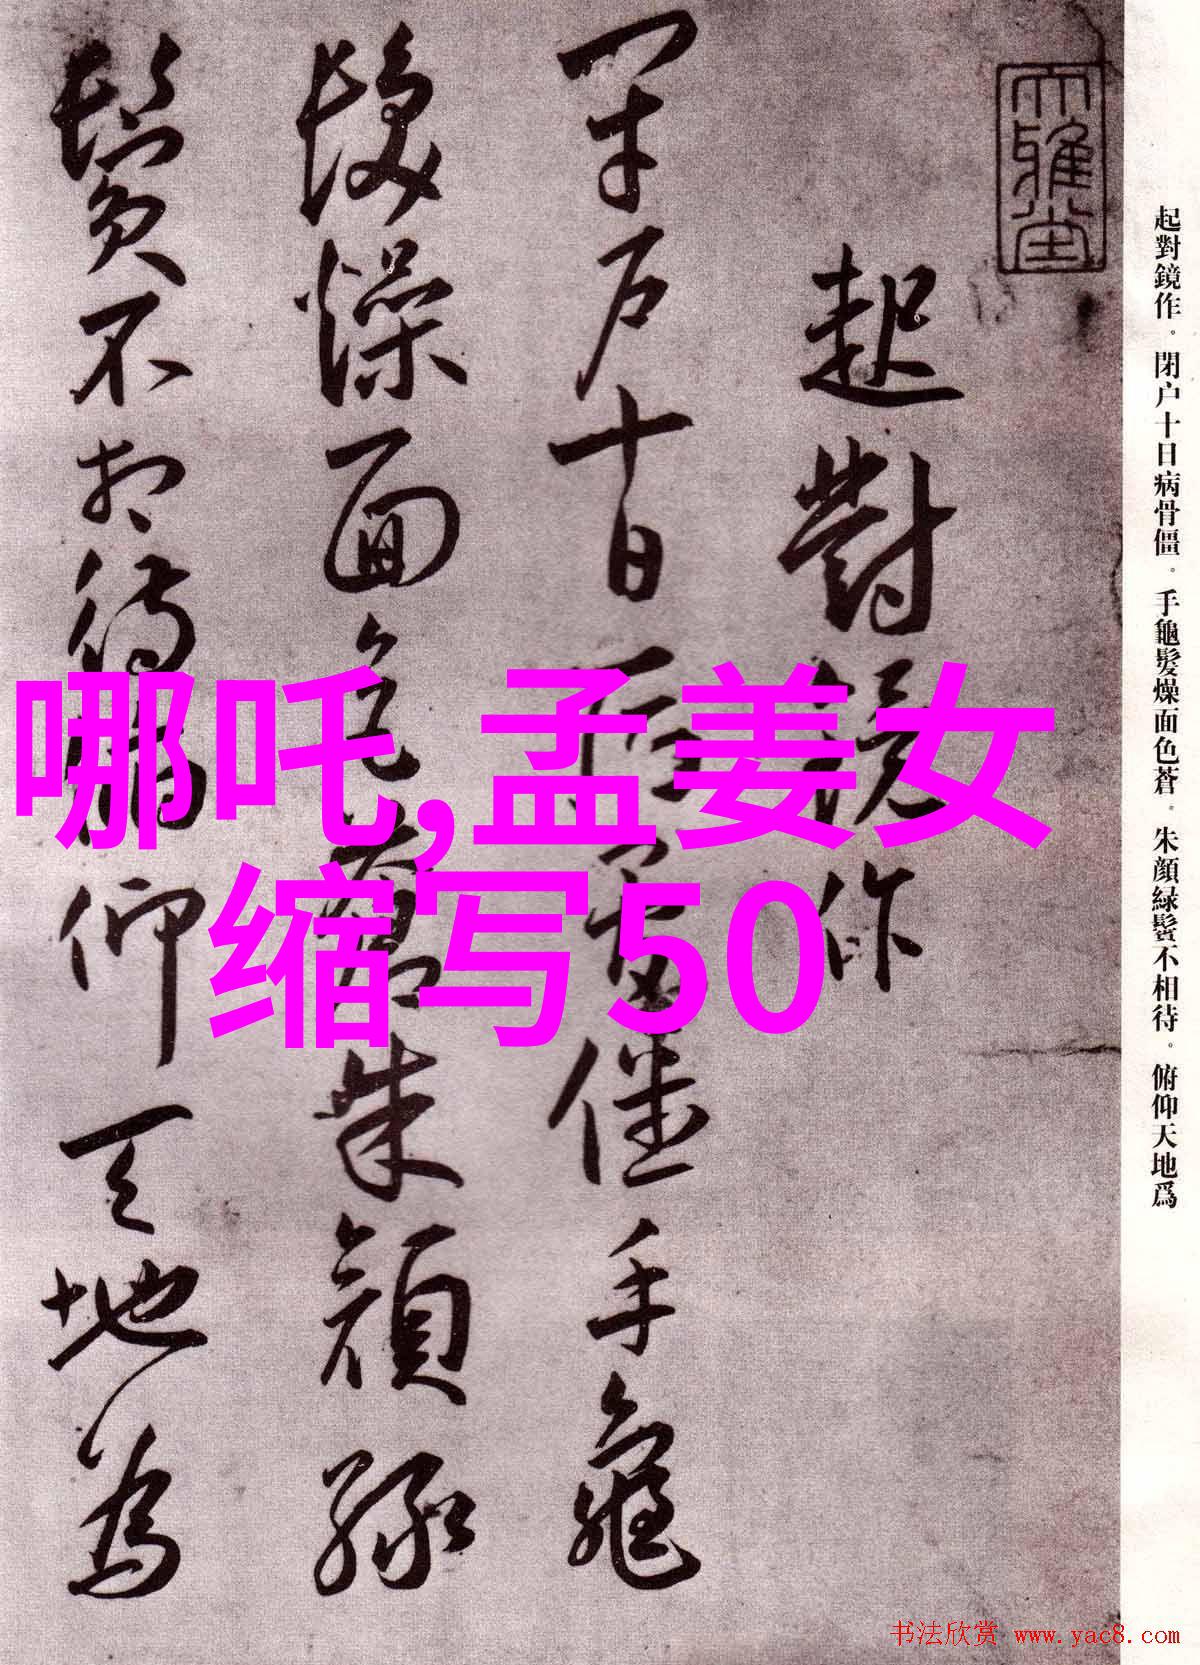 大雅堂
起對鏡作
閉戶十日病骨僵手龜
髮燥面色蒼朱顏綠
鬢不相待俯仰天地為
起對鏡作。閉户十日病骨僵。手龜髮燥面色蒼。朱顔緑鬢不相待。俯仰天地爲
哪吒,孟姜女
缩写50
书法欣赏 www.yac8.com